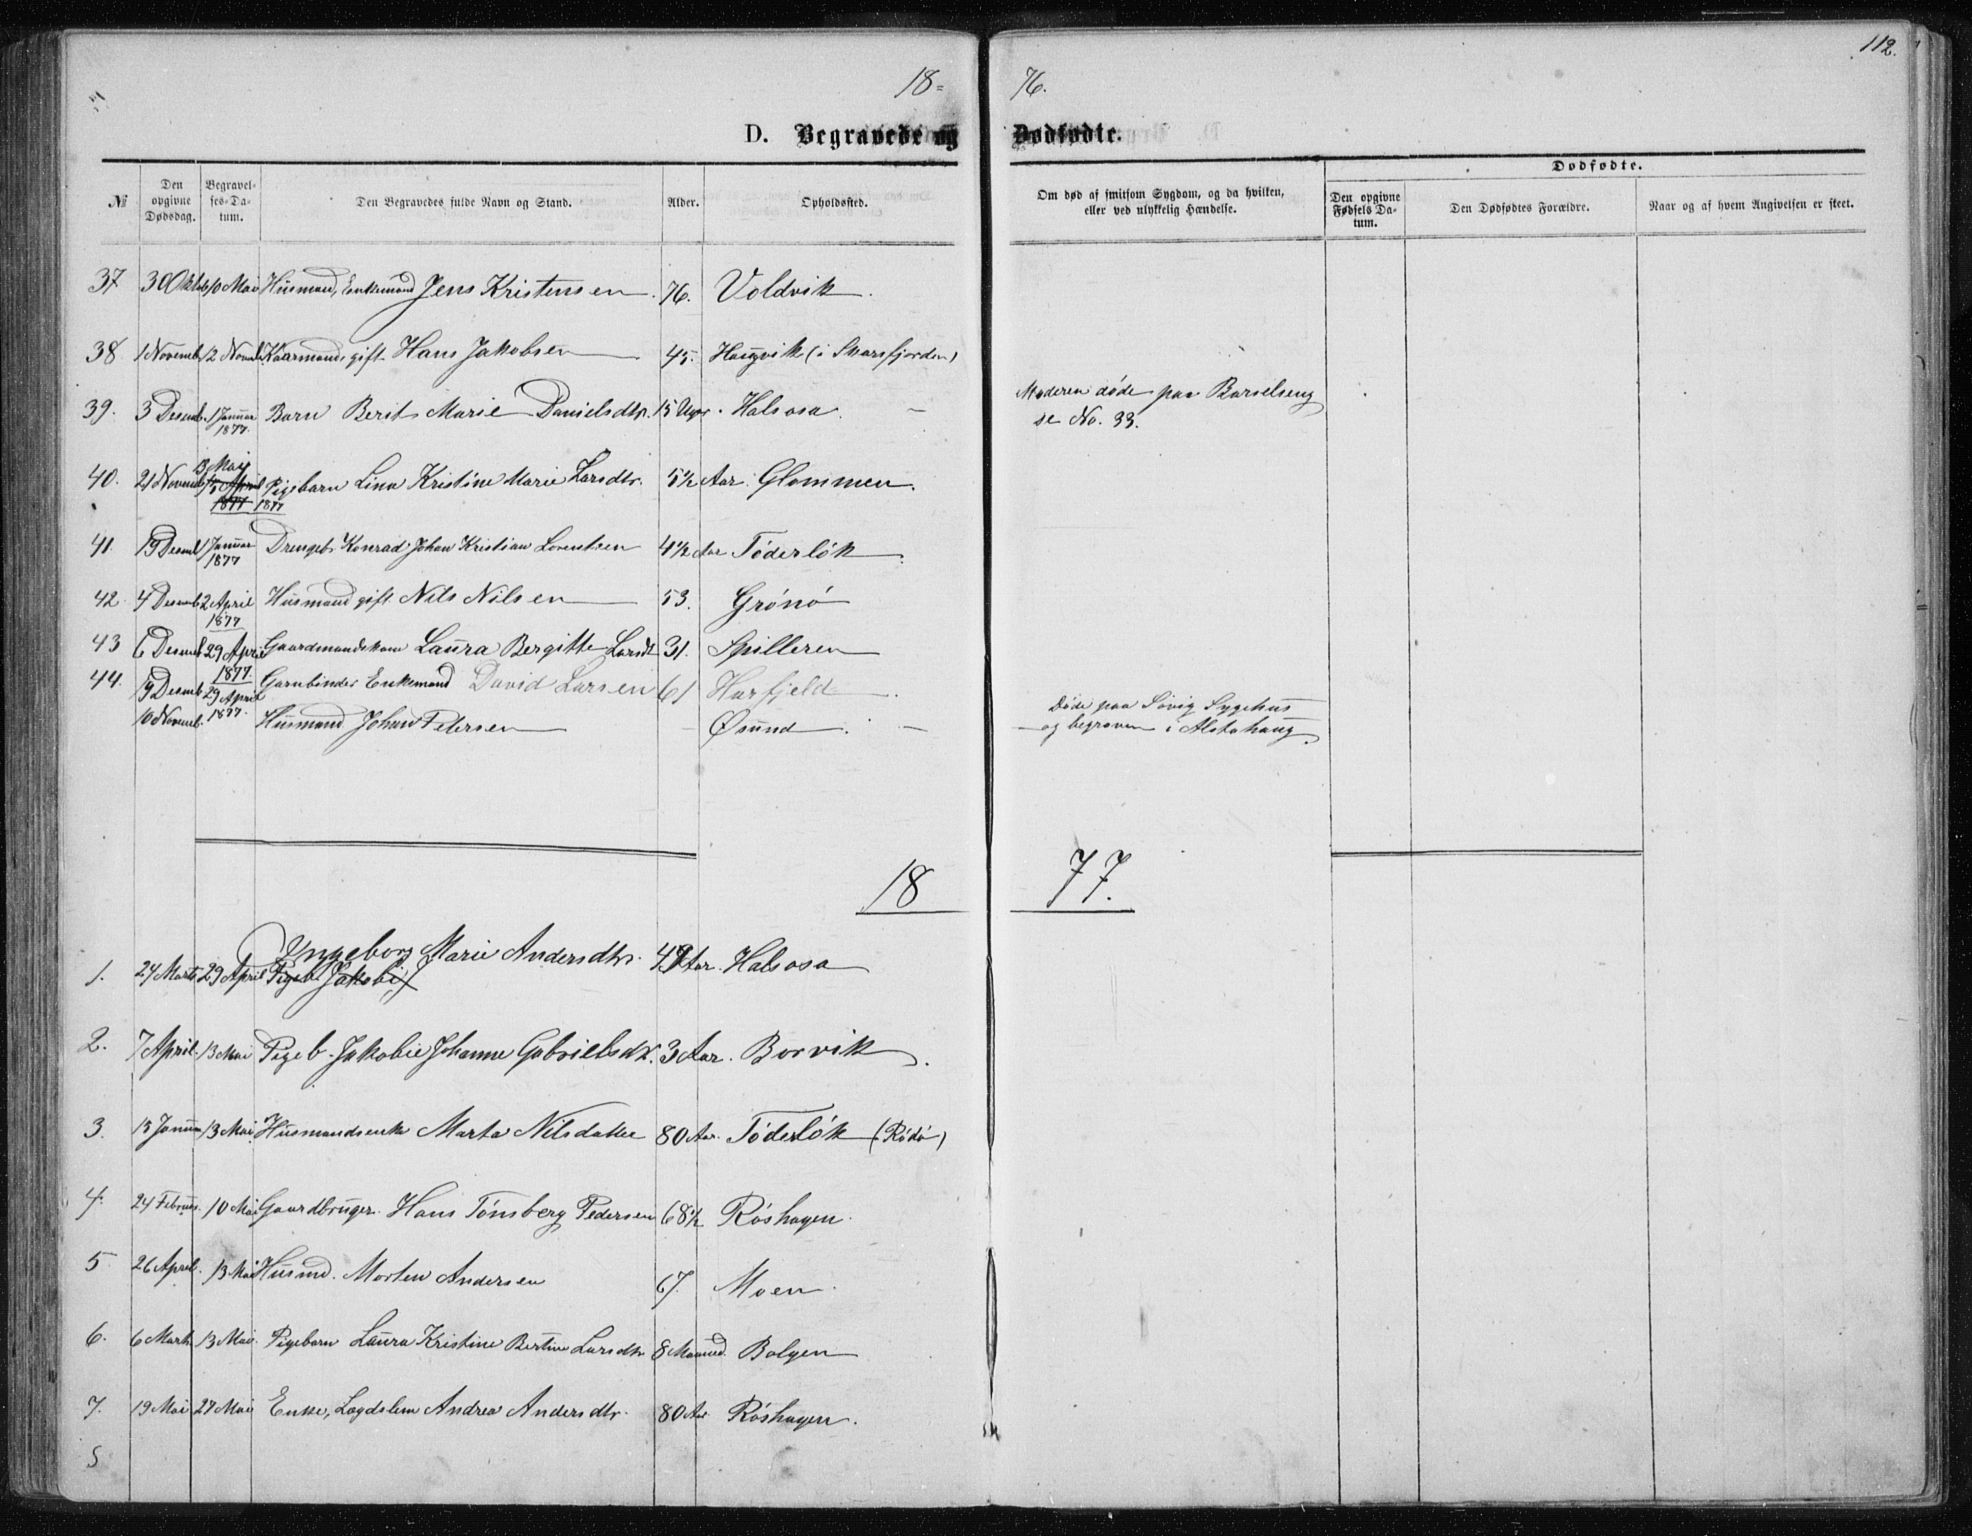 112.
18=76.
D. Begravede og Dødfødte.
Dødfødte.
№ Den opgivne Dødsdag. Begravelses-Datum. Den Begravedes fulde Navn og Stand. Alder. Opholdssted. Om død af smitsom Sygdom, og da hvilken, eller ved ulykkelig Hændelse. Den opgivne Fødsels Datum. Den Dødfødtes Forældre. Naar og af hvem Angivelsen er skeet.
37 30 Oktob 10 Mai Husmand, Enkemand Jens Kristensen. 76. Voldvik.
38 1 Novemb. 12 Novemb. gift. Hans Jakobsen 45. Haugvik (i Skarsfjorden)
39. 3 Desemb. 1 Januar 1877 Barn Berit Marie Danielsdtr. 15 Uger. Halsosa. – Moderen døde paa Barselseng
se No. 33.
40. 21 Novemb. 13 Mai 15 April 1877 1877 Pigebarn Lina Kristine Marie Larsdtr. 5½ Aar. Glommen.
41. 19 Desemb 1 Januar 1877 Drengeb. Konrad Johan Kristian Lorentsen 4½ Aar Töderlök.
42. 4 Desemb 2 April 1877 Husmand gift Nils Nilsen 53. Grönö
43 6 Desemb 29 April 1877 Gaardmandskone Laura Bergitte Larsdt 31. Spilleren
44. 19 Desemb 29 April 1877. Garnbinder Enkemand David Larsen 61 Harfjeld.
10 Novemb. Husmand Johan Petersen – Øsund. – Døde paa Søvig Sygehus
og begraven i Alstahaug.
18 77.
Yngeborg Marie Andersdtr.
1. 24 Marts 29 April Pigeb Jakobi 49 Aar. Halsosa
2. 7 April. 13 Mai Pigeb. Jakobie Johanne Gabrielsdt. 3 Aar. Borvik.
3. 15 Januar 13 Mai Husmandsenke Marta Nilsdatter 80 Aar. Töderlök (Rödö)
4. 24 Februar. 10 Mai Gaardbruger. Hans Tönsberg Pedersen 68½ Röshagen.
5 26 April. 13 Mai Husmd. Morten Andersen 67. Moen.
6. 6 Marts 13 Mai. Pigebarn Laura Kristine Bertine Larsdtr 8 Maaned. Bolgen
7. 19 Mai 27 Mai Enke, Lægdslem Andrea Andersdtr. 80 Aar Röshagen.